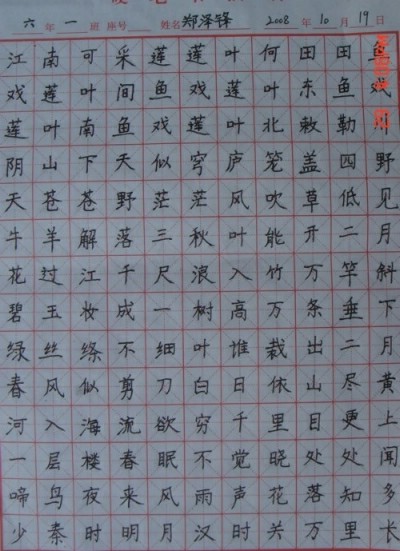 六年一班座号 姓名郑泽锋 2008年10月19日
江南可采莲莲叶何田田鱼
戏莲叶间鱼戏莲叶东鱼戏
莲叶南鱼戏莲叶北敕勒川
阴山下天似穹庐笼盖四野
天苍苍野茫茫风吹草低见
牛羊解落三秋叶能开二月
花过江千尺浪入竹万竿斜
碧玉妆成一树高万条垂下
绿丝绦不细叶谁裁出二月
春风似剪刀白日依山尽黄
河入海流欲穷千里目更上
一层楼春眠不觉晓处处闻
啼鸟夜来风雨声花落知多
少秦时明月汉时关万里长